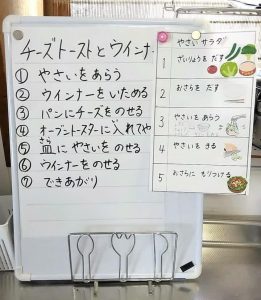 チーズトーストとウインナー
① やさいをあらう
② ウインナーをいためる
③ パンにチーズをのせる
④ オーブントースターに入れてやく
さら
⑤ 皿にやさいをのせる
⑥ ウインナーをのせる
⑦ できあがり
やさいサラダ
1 ざいりょうをだす
2 おさらをだす
3 やさいをあらう
4 やさいをきる
5 おさらにもりつける